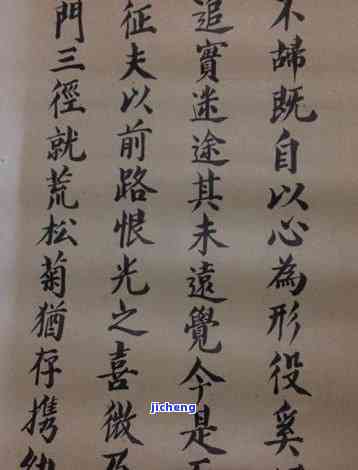 不歸既自以心為形役奚
追實迷途其未遠覺今是
征夫以前路恨光之喜微乃
門三徑就荒松菊猶存携幼
jicheng